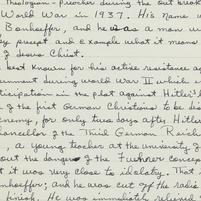 Theologian - preacher during the out break
World War in 1937. His name w
Bonhoeffer, and he was a man w
by precept and example what it means
of Jesus Christ.
best known for his active resistance a
ernment during world War II which i
ticipation in the plot against Hitler's
of the first German Christians to be dis
enemy, for only two days after Hitler
chancellor of the Third German Reich
, a young teacher at the university of
out the danger of the Fuehrer concep
t it was very close to idolatry. That
nhoeffer; and he was cut off the radio
finish. He was immediately relieved